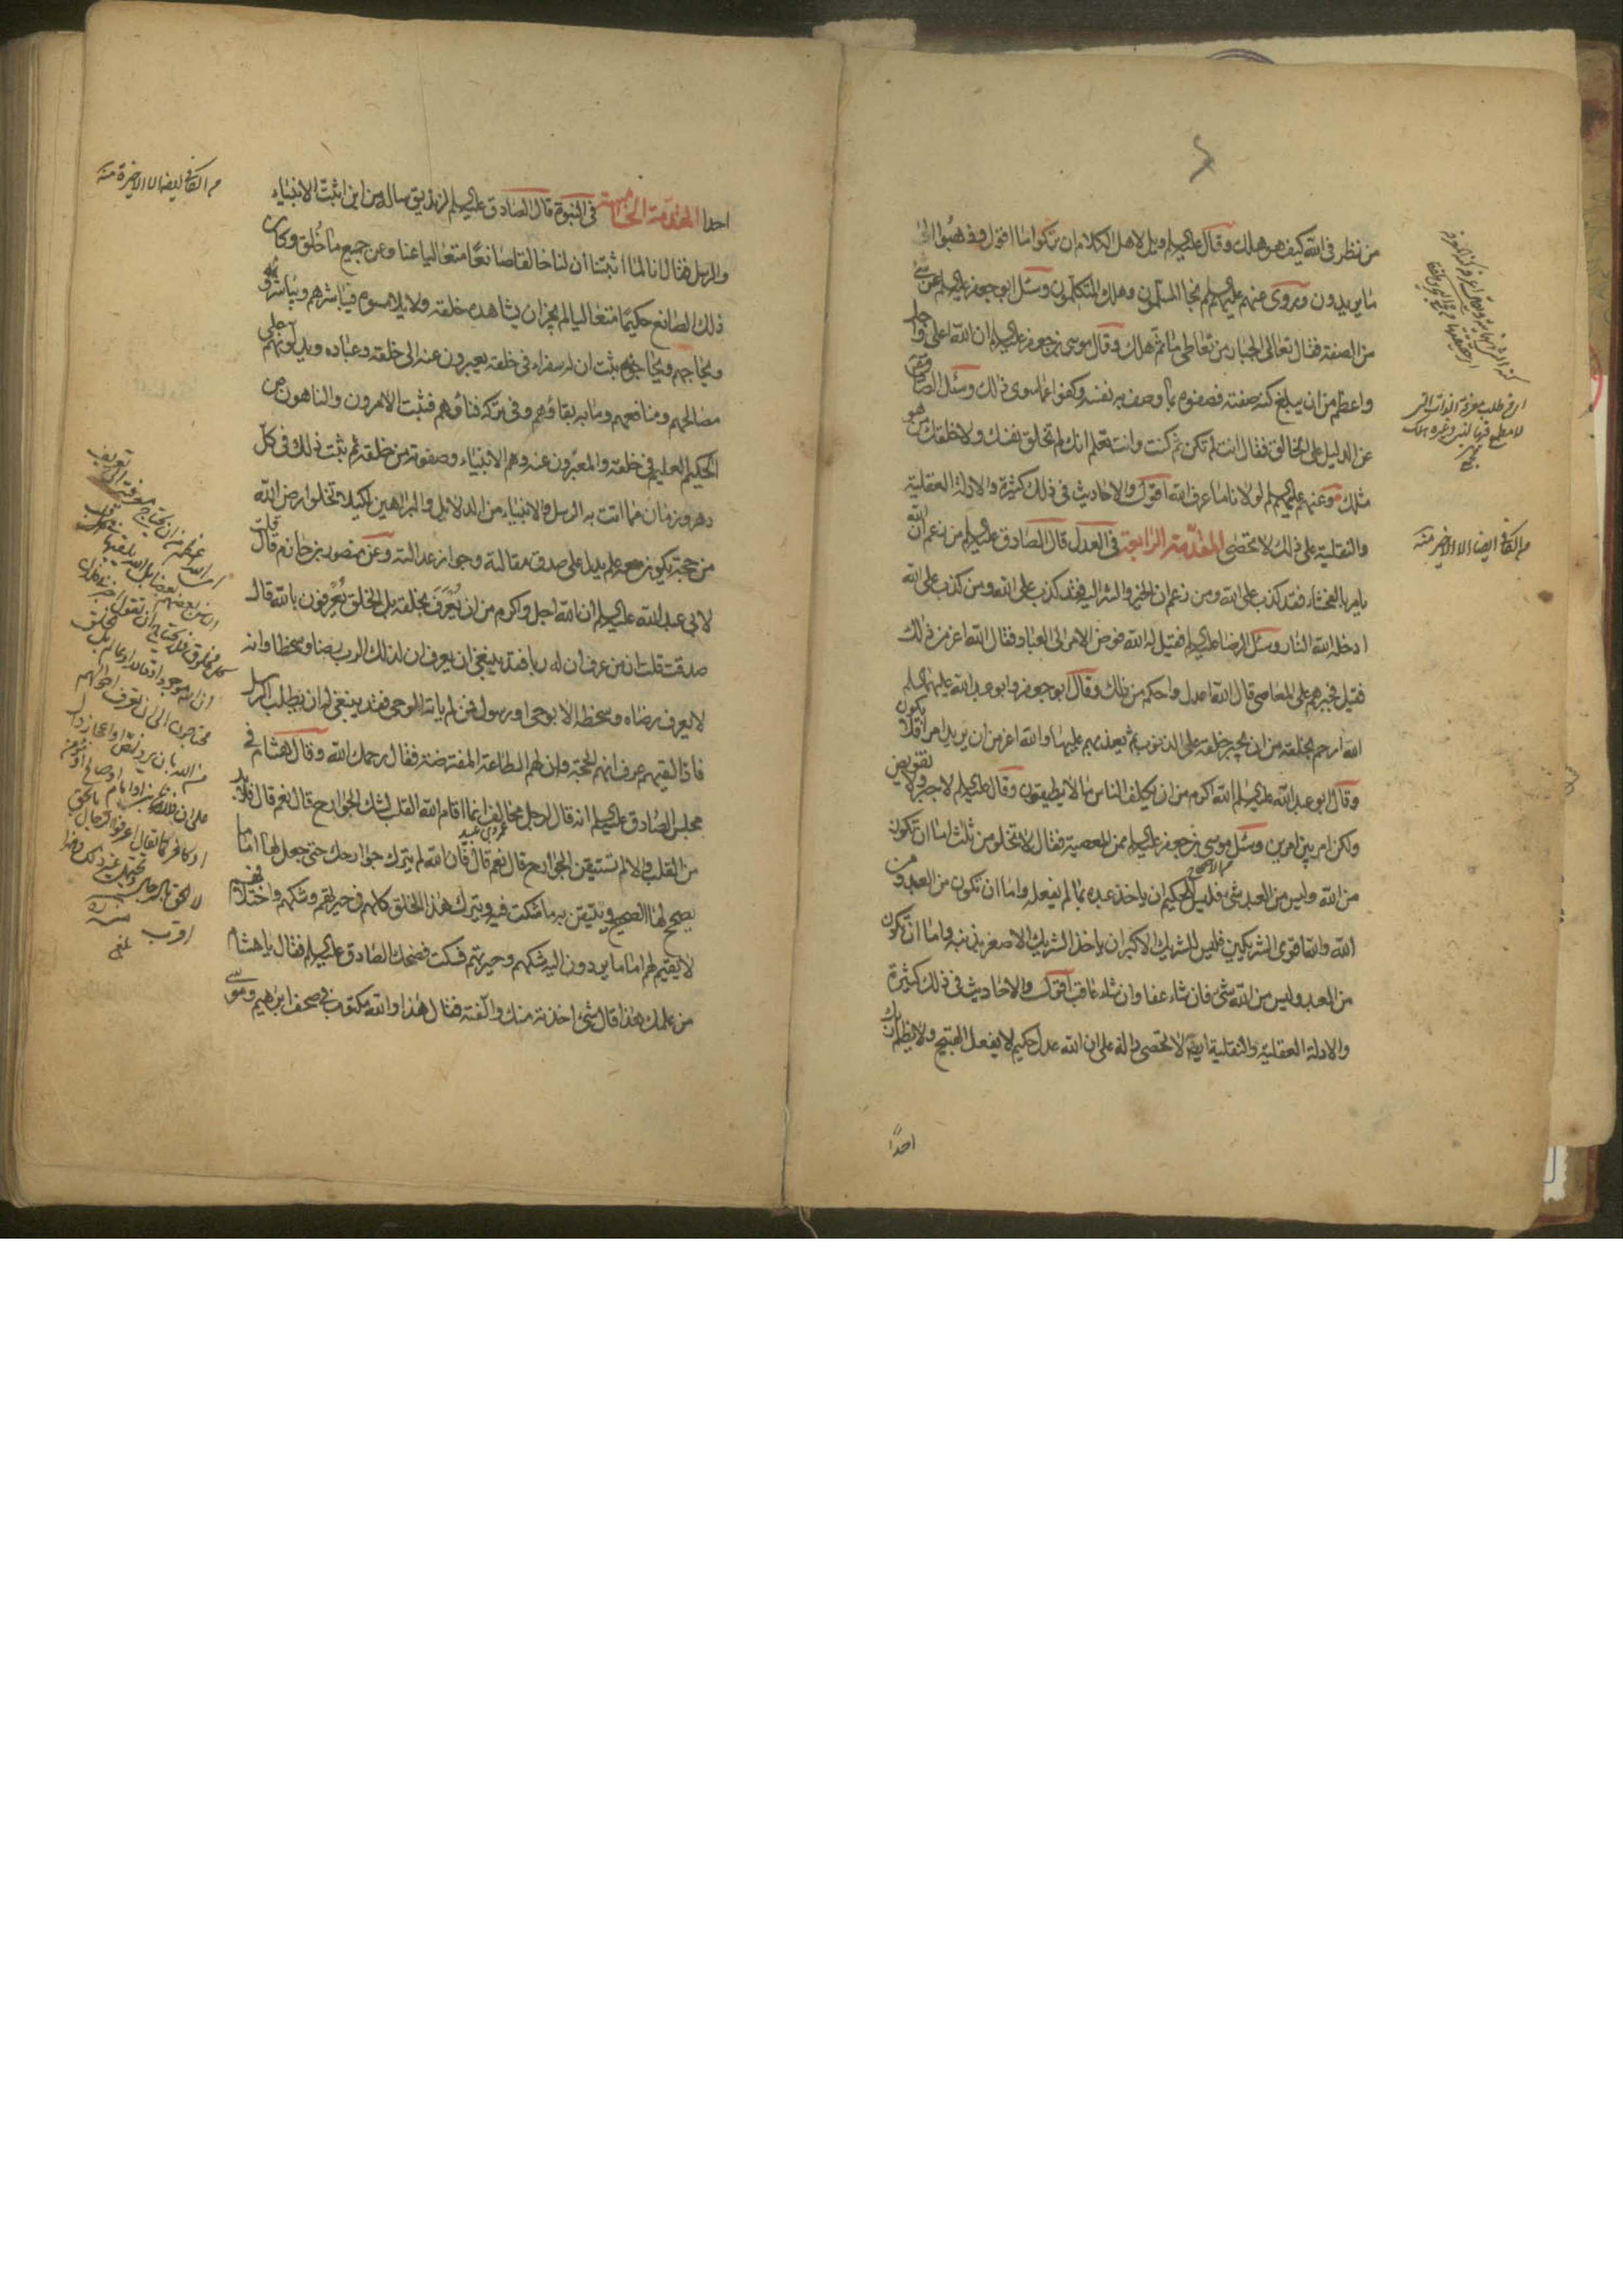 من نظر في الله كيف هو هلك وقال عليه السلم ويل لاهل الكلام ان تركوا ما اقول وذهبوا الى
ما يريدون ويروى عنهم عليهم السلم نجا المسلمون وهلك المتكلمون وسئل ابو جعفر عليه السلم عن شئ
من الصفة فقال تعالى الجبار من تعاطى ما ثم هلك وقال موسى بن جعفر عليه السلم ان الله اعلى واجل
واعظم من ان يبلغ كنه صفته فصفوه بما وصف به نفسه وكفوا عما سوى ذلك وسئل الصادق
عن الدليل على الخالق فقال انت لم تكن ثم كنت وانت تعلم انك لم تخلق نفسك ولا خلقك من هو
مثلك وعنهم عليهم السلم لولانا ما عرف الله اقول والاحاديث في ذلك كثيرة والادلة العقلية
والنقلية على ذلك لا تحصى المقدمة الرابعة في العدل قال الصادق عليه السلم من زعم ان الله
يامر بالفحشاء فقد كذب على الله ومن زعم ان الخير والشر اليه فقد كذب على الله ومن كذب على الله
ادخله الله النار وسئل الرضا عليه السلم فقيل له الله فوض الامر الى العباد فقال الله اعز من ذلك
فقيل فجبرهم على المعاصي قال الله اعدل واحكم من ذلك وقال ابو جعفر وابو عبد الله عليهما السلم
الله ارحم بخلقه من ان يجبر خلقه على الذنوب ثم يعذبهم عليها والله اعز من ان يريد امرا فلا يكون
وقال ابو عبد الله عليه السلم الله اكرم من ان يكلف الناس ما لا يطيقون وقال عليه السلم لا جبر ولا تفويض
ولكن امر بين امرين وسئل موسى بن جعفر عليه السلم ممن المعصية فقال لا تخلو من ثلث اما ان تكون
من الله وليس من العبد شئ فليس للحكيم ان ياخذ عبده بما لم يفعله واما ان تكون من العبد ومن
الله والله اقوى الشريكين فليس للشريك الاكبر ان ياخذ الشريك الاصغر بذنبه واما ان تكون
من العبد وليس من الله شئ فان شاء عفا وان شاء عاقب اقول والاحاديث في ذلك كثيرة
والادلة العقلية والنقلية ايضا لا تحصى دالة على ان الله عدل حكيم لا يفعل القبيح ولا يظلم
احدا
من الكافي ايضا الا الاخير منه
احدا المقدمة الخامسة في النبوة قال الصادق عليه السلم لزنديق سال من اين اثبت الانبياء
والرسل فقال انا لما اثبتنا ان لنا خالقا صانعا متعاليا عنا وعن جميع ما خلق وكان
ذلك الصانع حكيما متعاليا لم يجز ان يشاهده خلقه ولا يلامسوه فيباشرهم ويباشروه
ويحاجهم ويحاجوه ثبت ان له سفراء في خلقه يعبرون عنه الى خلقه وعباده ويدلونهم على
مصالحهم ومنافعهم وما به بقاؤهم وفي تركه فناؤهم فثبت الامرون والناهون عن
الحكيم العليم في خلقه والمعبرون عنه وهم الانبياء وصفوته من خلقه ثم ثبت ذلك في كل
دهر وزمان مما اتت به الرسل والانبياء من الدلائل والبراهين لكيلا تخلو ارض الله
من حجة يكون معه علم يدل على صدق مقالته وجواز عدالته وعن منصور بن حازم قال قلت
لابي عبد الله عليه السلم ان الله اجل واكرم من ان يعرف بخلقه بل الخلق يعرفون بالله قال
صدقت قلت ان من عرف ان له ربا فقد ينبغي ان يعرف ان لذلك الرب رضا وسخطا وانه
لا يعرف رضاه وسخطه الا بوحي او رسول فمن لم ياته الوحي فقد ينبغي له ان يطلب الرسل
فاذا لقيهم عرف انهم الحجة وان لهم الطاعة المفترضة فقال رحمك الله وقال هشام في
مجلس الصادق عليه السلم انه قال لرجل مخالف انما اقام الله القلب لشك الجوارح قال نعم قال فلا بد
عمرو بن عبيد
من القلب والا لم تستيقن الجوارح قال نعم قال فان الله لم يترك جوارحك حتى جعل لها اماما
يصحح لها الصحيح ويتيقن به ما شكت فيه ويترك هذا الخلق كلهم في حيرتهم وشكهم واختلافهم
لا يقيم لهم اماما يردون اليه شكهم وحيرتهم فسكت فضحك الصادق عليه السلم فقال يا هشام
من علمك هذا قال شئ اخذته منك والفته فقال هذا والله مكتوب في صحف ابرهيم وموسى
من الكافي ايضا الا الاخيرة منه